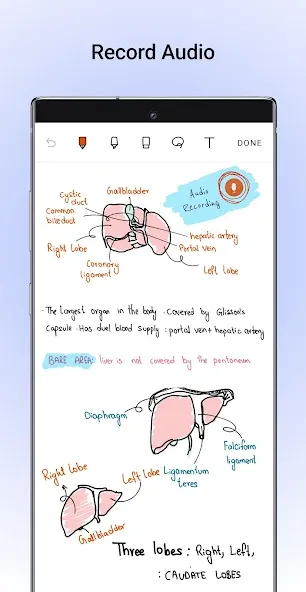 Record Audio
T DONE
Cystic
duct
Gallbladder
Common
bile duct
Audio
Recording
hepatic artery
Portal vein
Right lobe
Coronary
ligament
Left lobe
· The largest organ in the body . Covered by Glisson's
Capsule · Has duel blood supply : portal vein + hepatic artery
BARE AREA: liver is not covered by the peritoneum
Diaphragm
Falciform
ligament
Right lobe
Left lobe
Ligamentum
teres
Gallbladder
Three lobes : Right, Left,
: CAUDATE LOBES